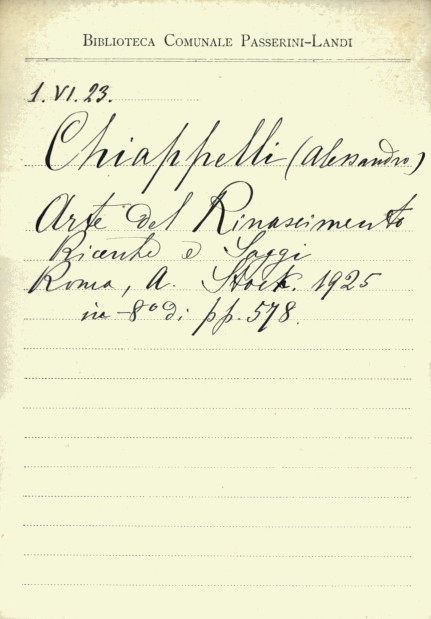 BIBLIOTECA COMUNALE PASSERINI-LANDI
1. VI. 23.
Chiappelli (Alessandro)
Arte del Rinascimento
Ricerche e Saggi
Roma, A. Stock. 1925
in-8º di pp. 578.